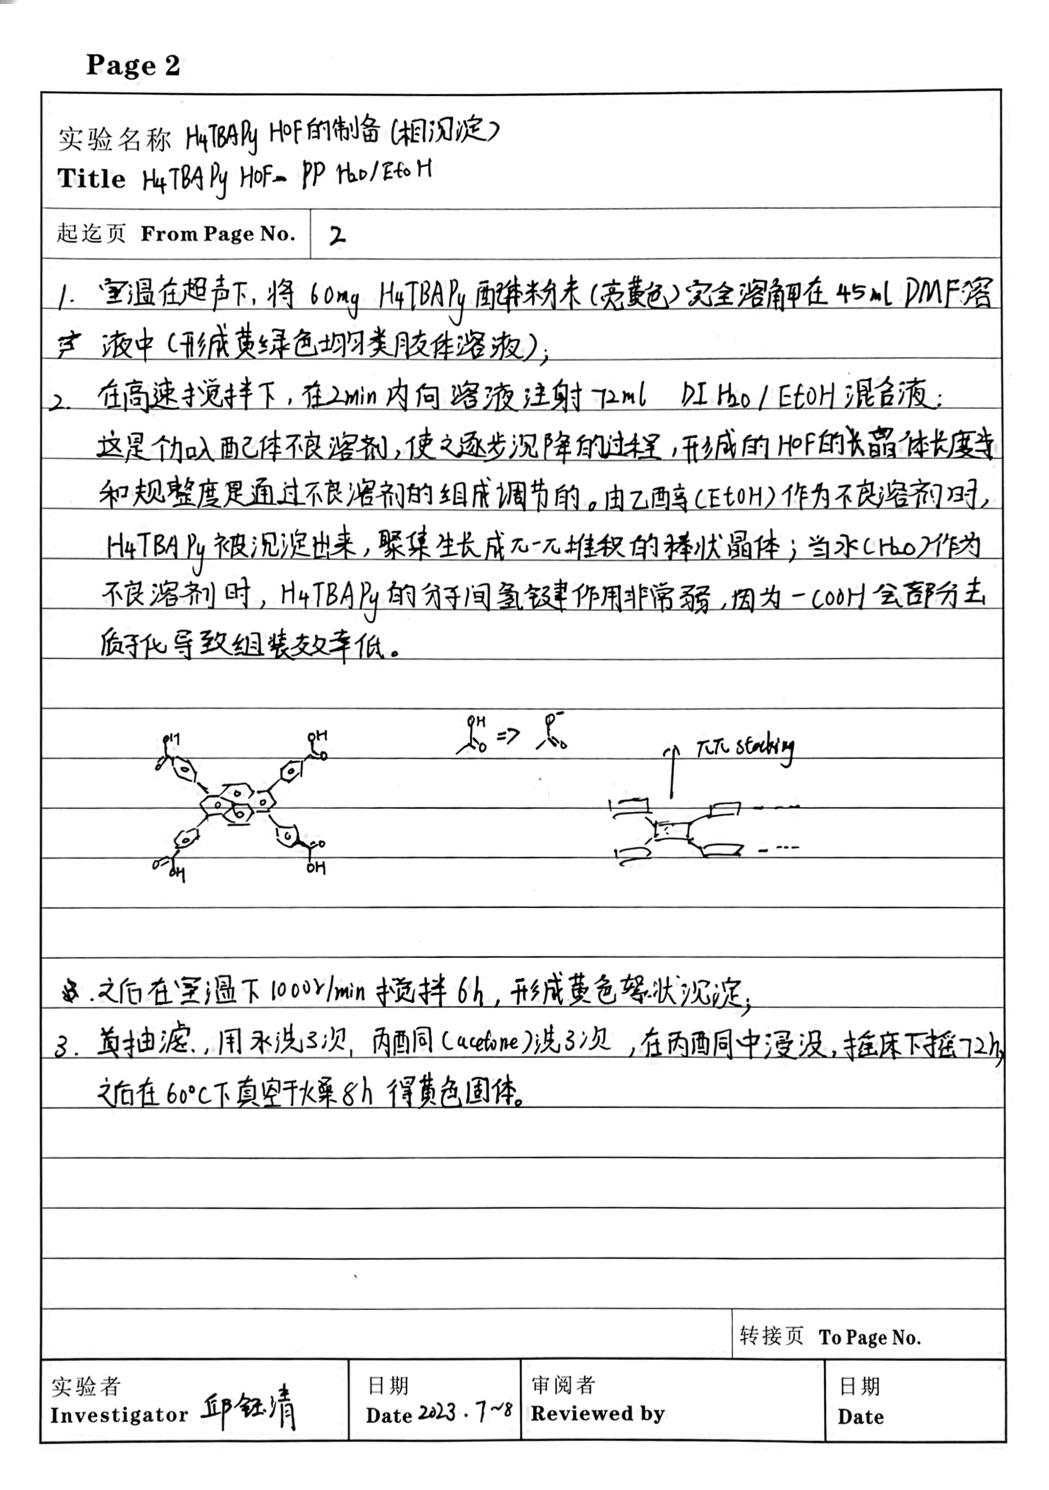 Page 2
实验名称 H4TBAPy HOF的制备(相沉淀)
Title H4TBAPy HOF- PP H2O/EtOH
起迄页 From Page No. 2
1. 室温在超声下,将60mg H4TBAPy配体粉末(亮黄色)完全溶解在45ml DMF溶
液中(形成黄绿色均匀类胶体溶液);
2. 在高速搅拌下,在2min内向溶液注射72ml DI H2O/EtOH混合液:
这是个加入配体不良溶剂,使之逐步沉降的过程,形成的HOF的长晶体长度
和规整度是通过不良溶剂的组成调节的。由乙醇(EtOH)作为不良溶剂时,
H4TBAPy被沉淀出来,聚集生长成π-π堆积的棒状晶体;当水(H2O)作为
不良溶剂时,H4TBAPy的分子间氢键作用非常弱,因为-COOH会部分去
质子化导致组装效率低。
OH O => O- O
ππ stacking
OH O OH O
O OH O OH
之后在室温下1000r/min搅拌6h,形成黄色絮状沉淀;
3. 抽滤,用水洗3次,丙酮(acetone)洗3次,在丙酮中浸没,摇床下摇72h,
之后在60°C下真空干燥8h得黄色固体。
转接页 To Page No.
实验者 Investigator 邱钰清
日期 Date 2023.7~8
审阅者 Reviewed by
日期 Date